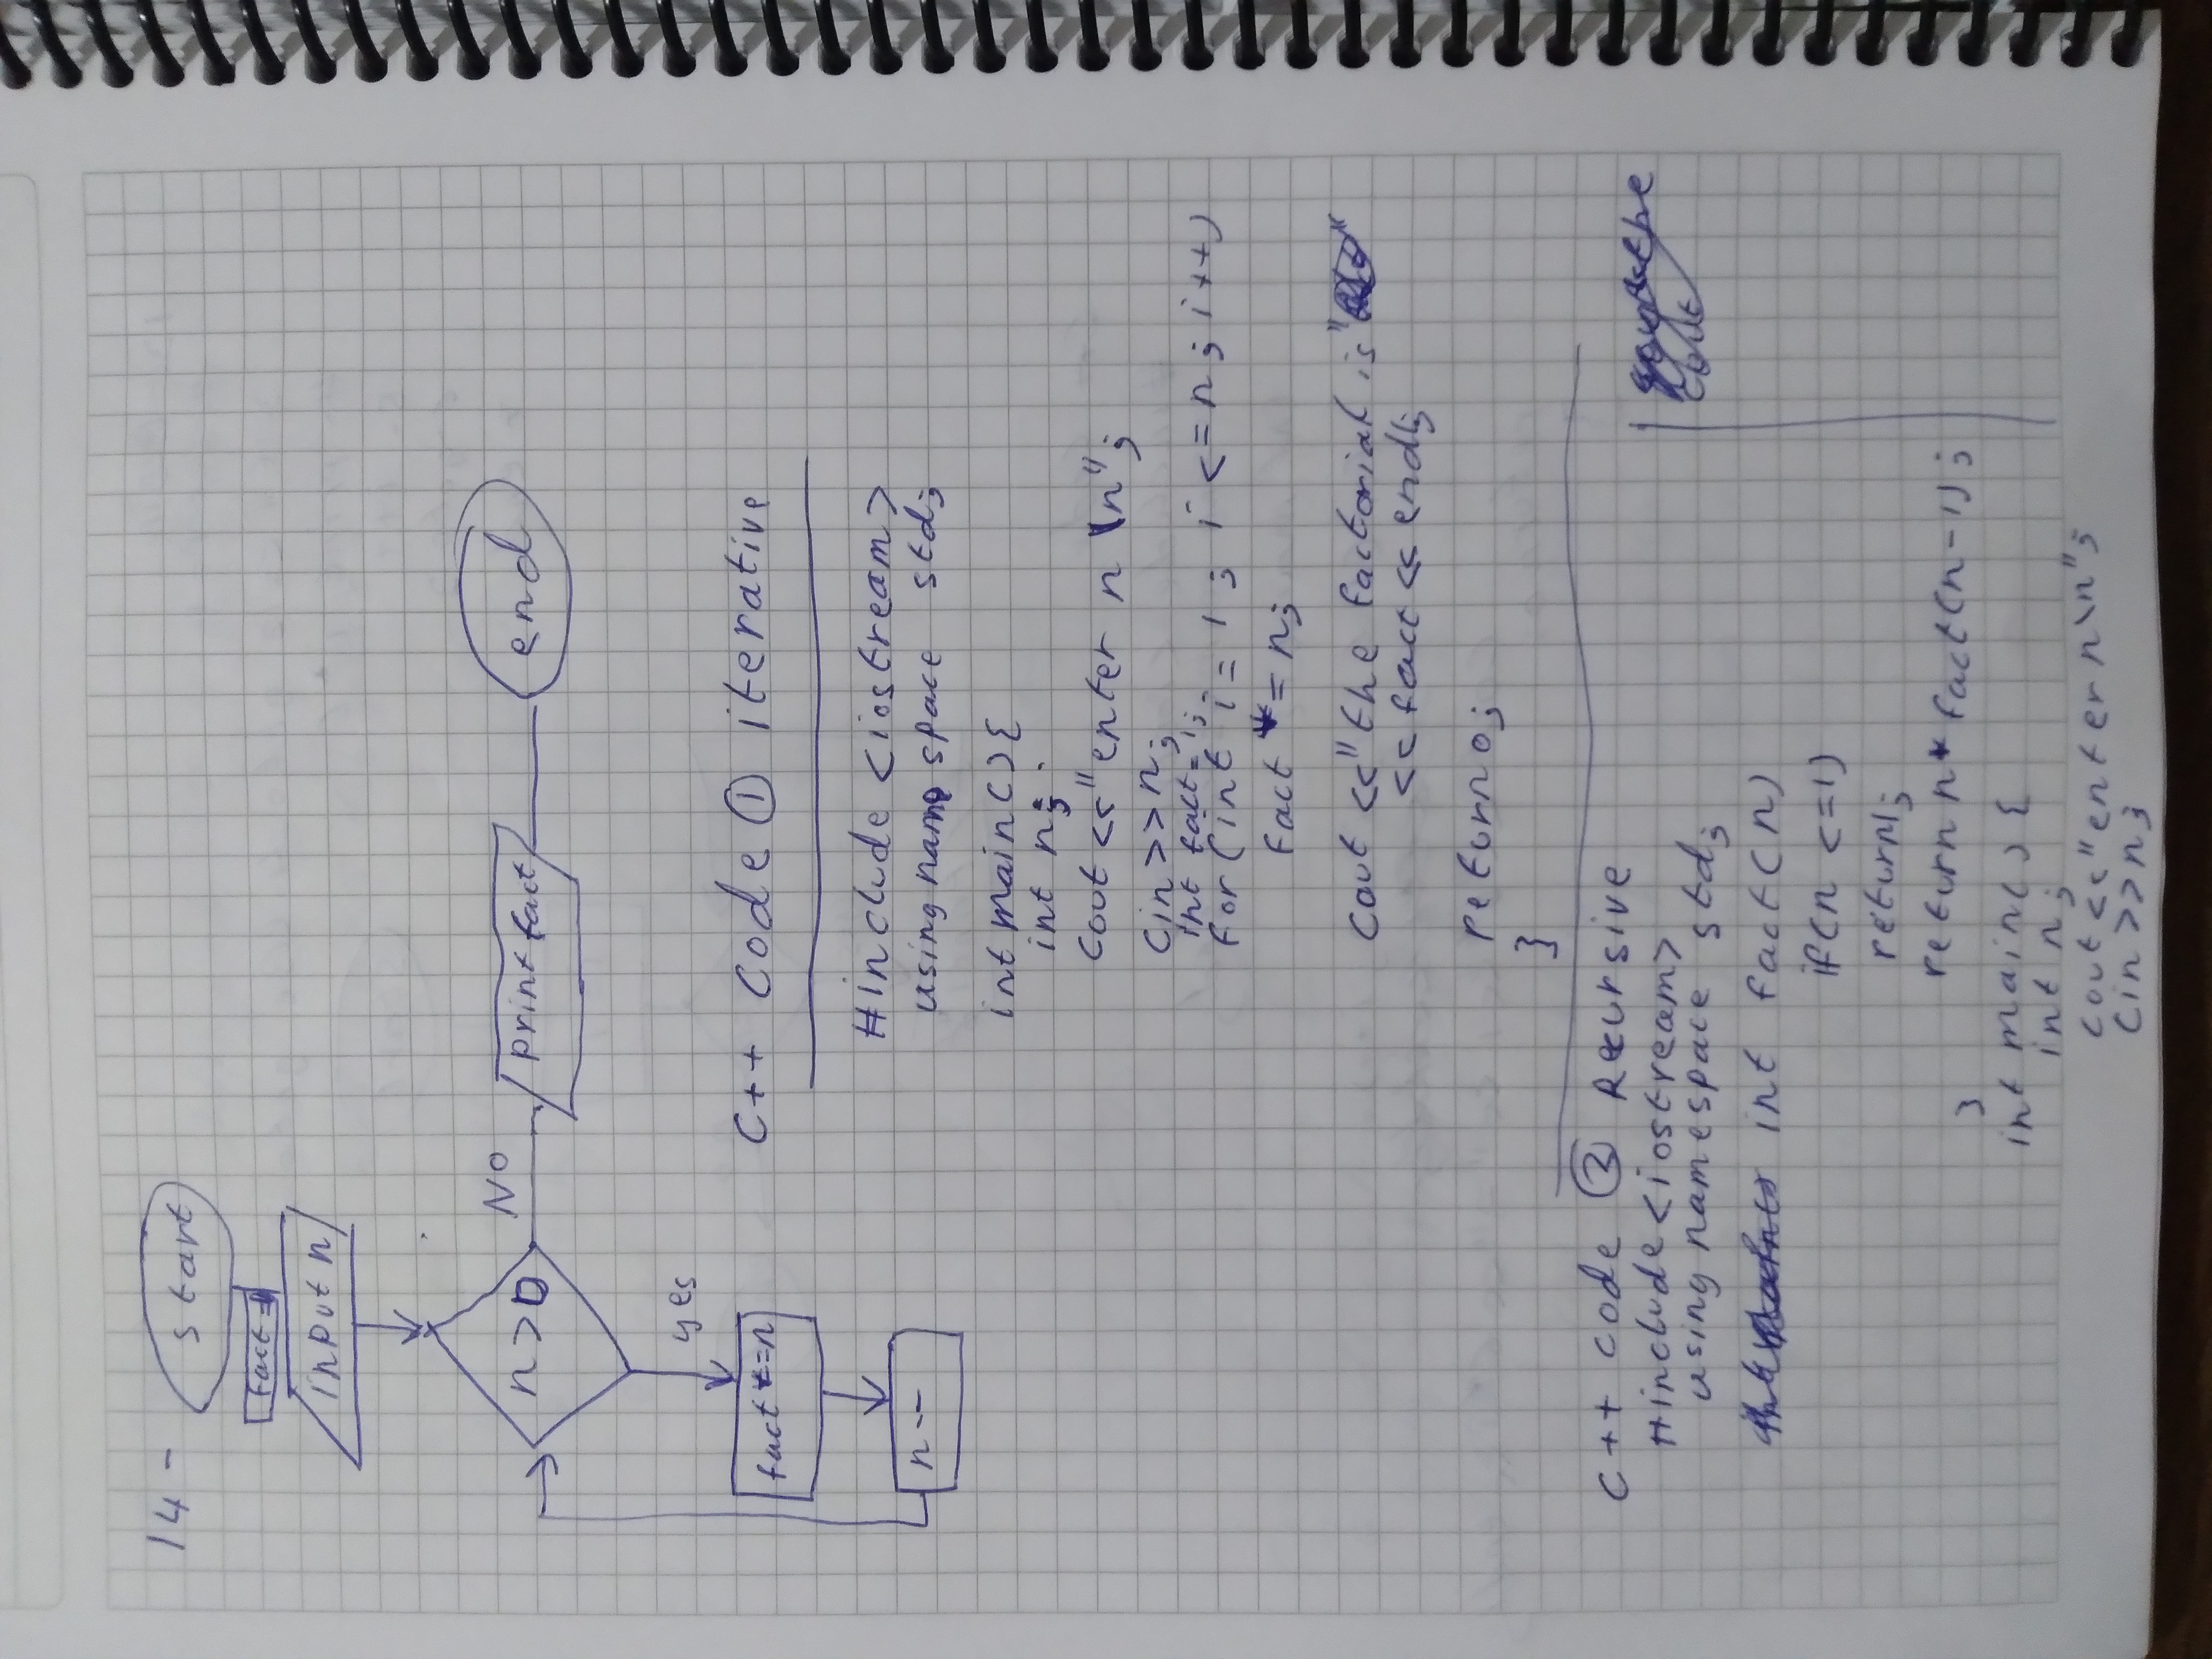 14 -
start
fact =
input n
n > 0
NO
print fact
end
yes
fact *= n
n --
C++ code ① iterative
#include <iostream>
using name space std;
int main() {
int n;
cout << "enter n \n";
cin >> n;
int fact = 1;
for (int i = 1 ; i <= n ; i++)
fact *= n;
cout << "the factorial is "
<< fact << endl;
return 0;
}
C++ code ② Recursive
#include <iostream>
using namespace std;
int fact(n)
if(n <=1)
return 1;
return n* fact(n-1);
}
int main() {
int n;
cout << "enter n\n";
cin >> n;
cout